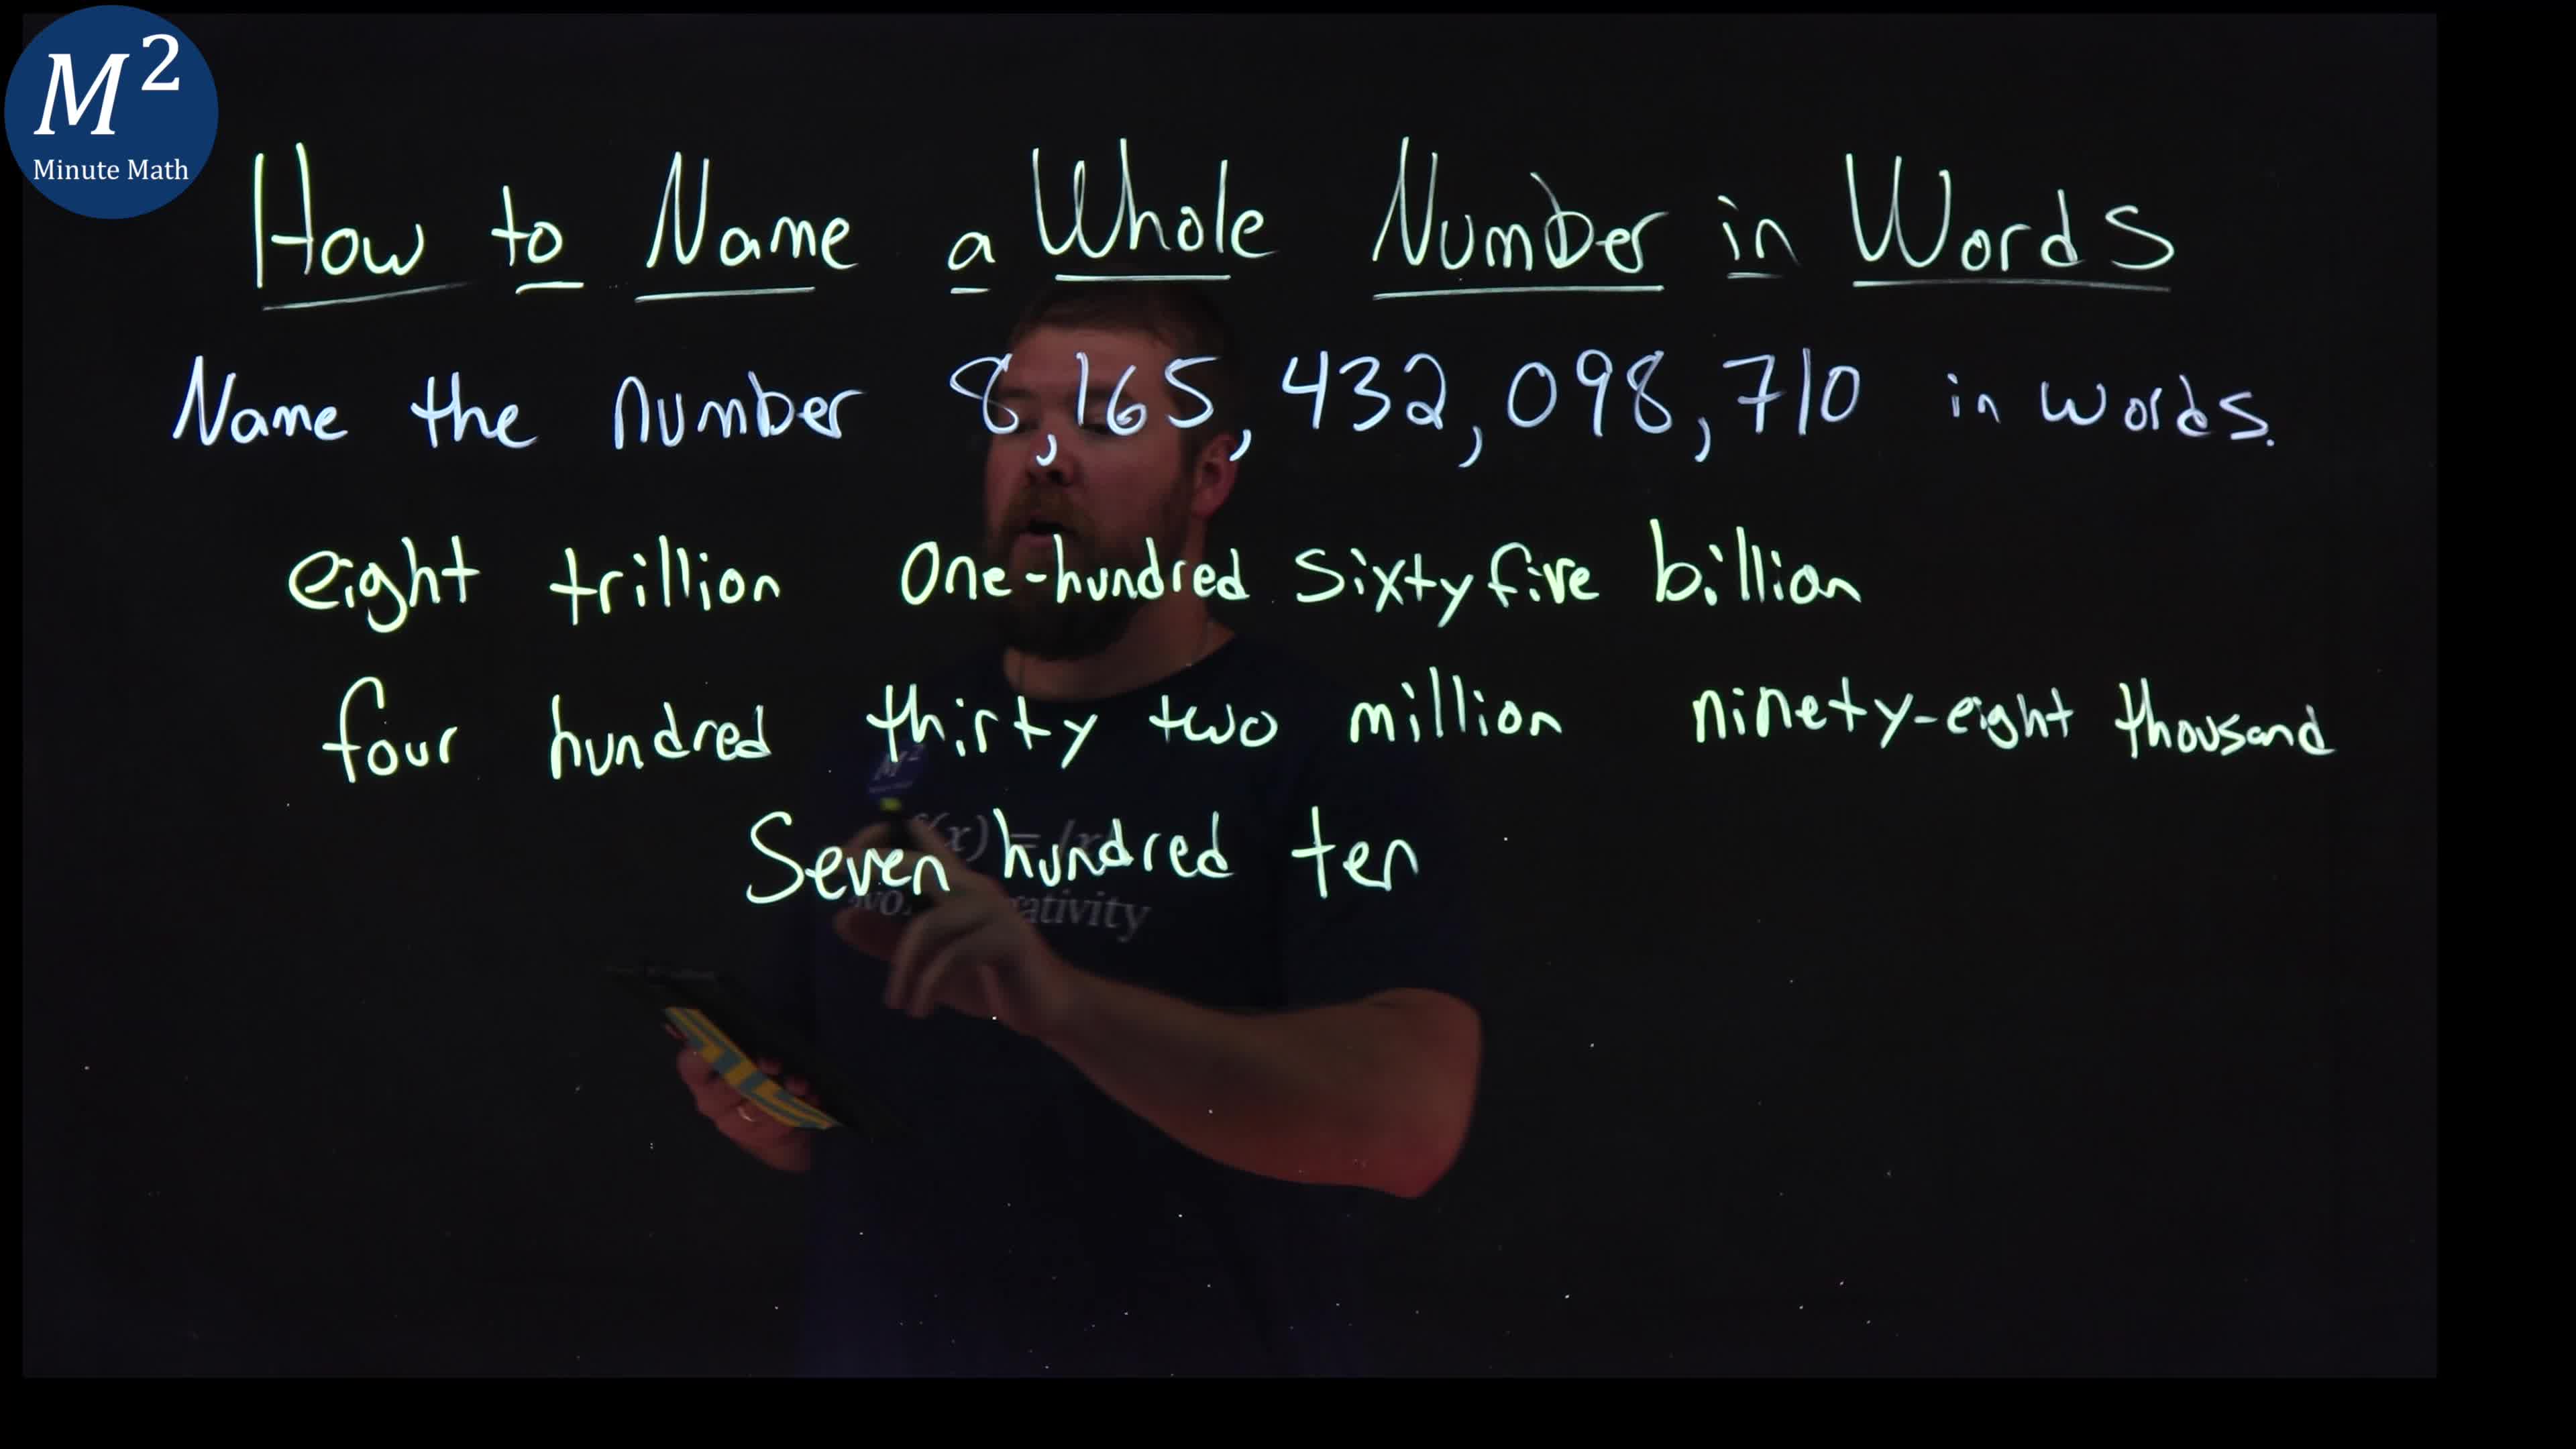 M²
Minute Math
How to Name a Whole Number in Words
Name the number 8,165,432,098,710 in words.
eight trillion One-hundred sixty five billion
four hundred thirty two million ninety-eight thousand
Seven hundred ten
M²
ativity